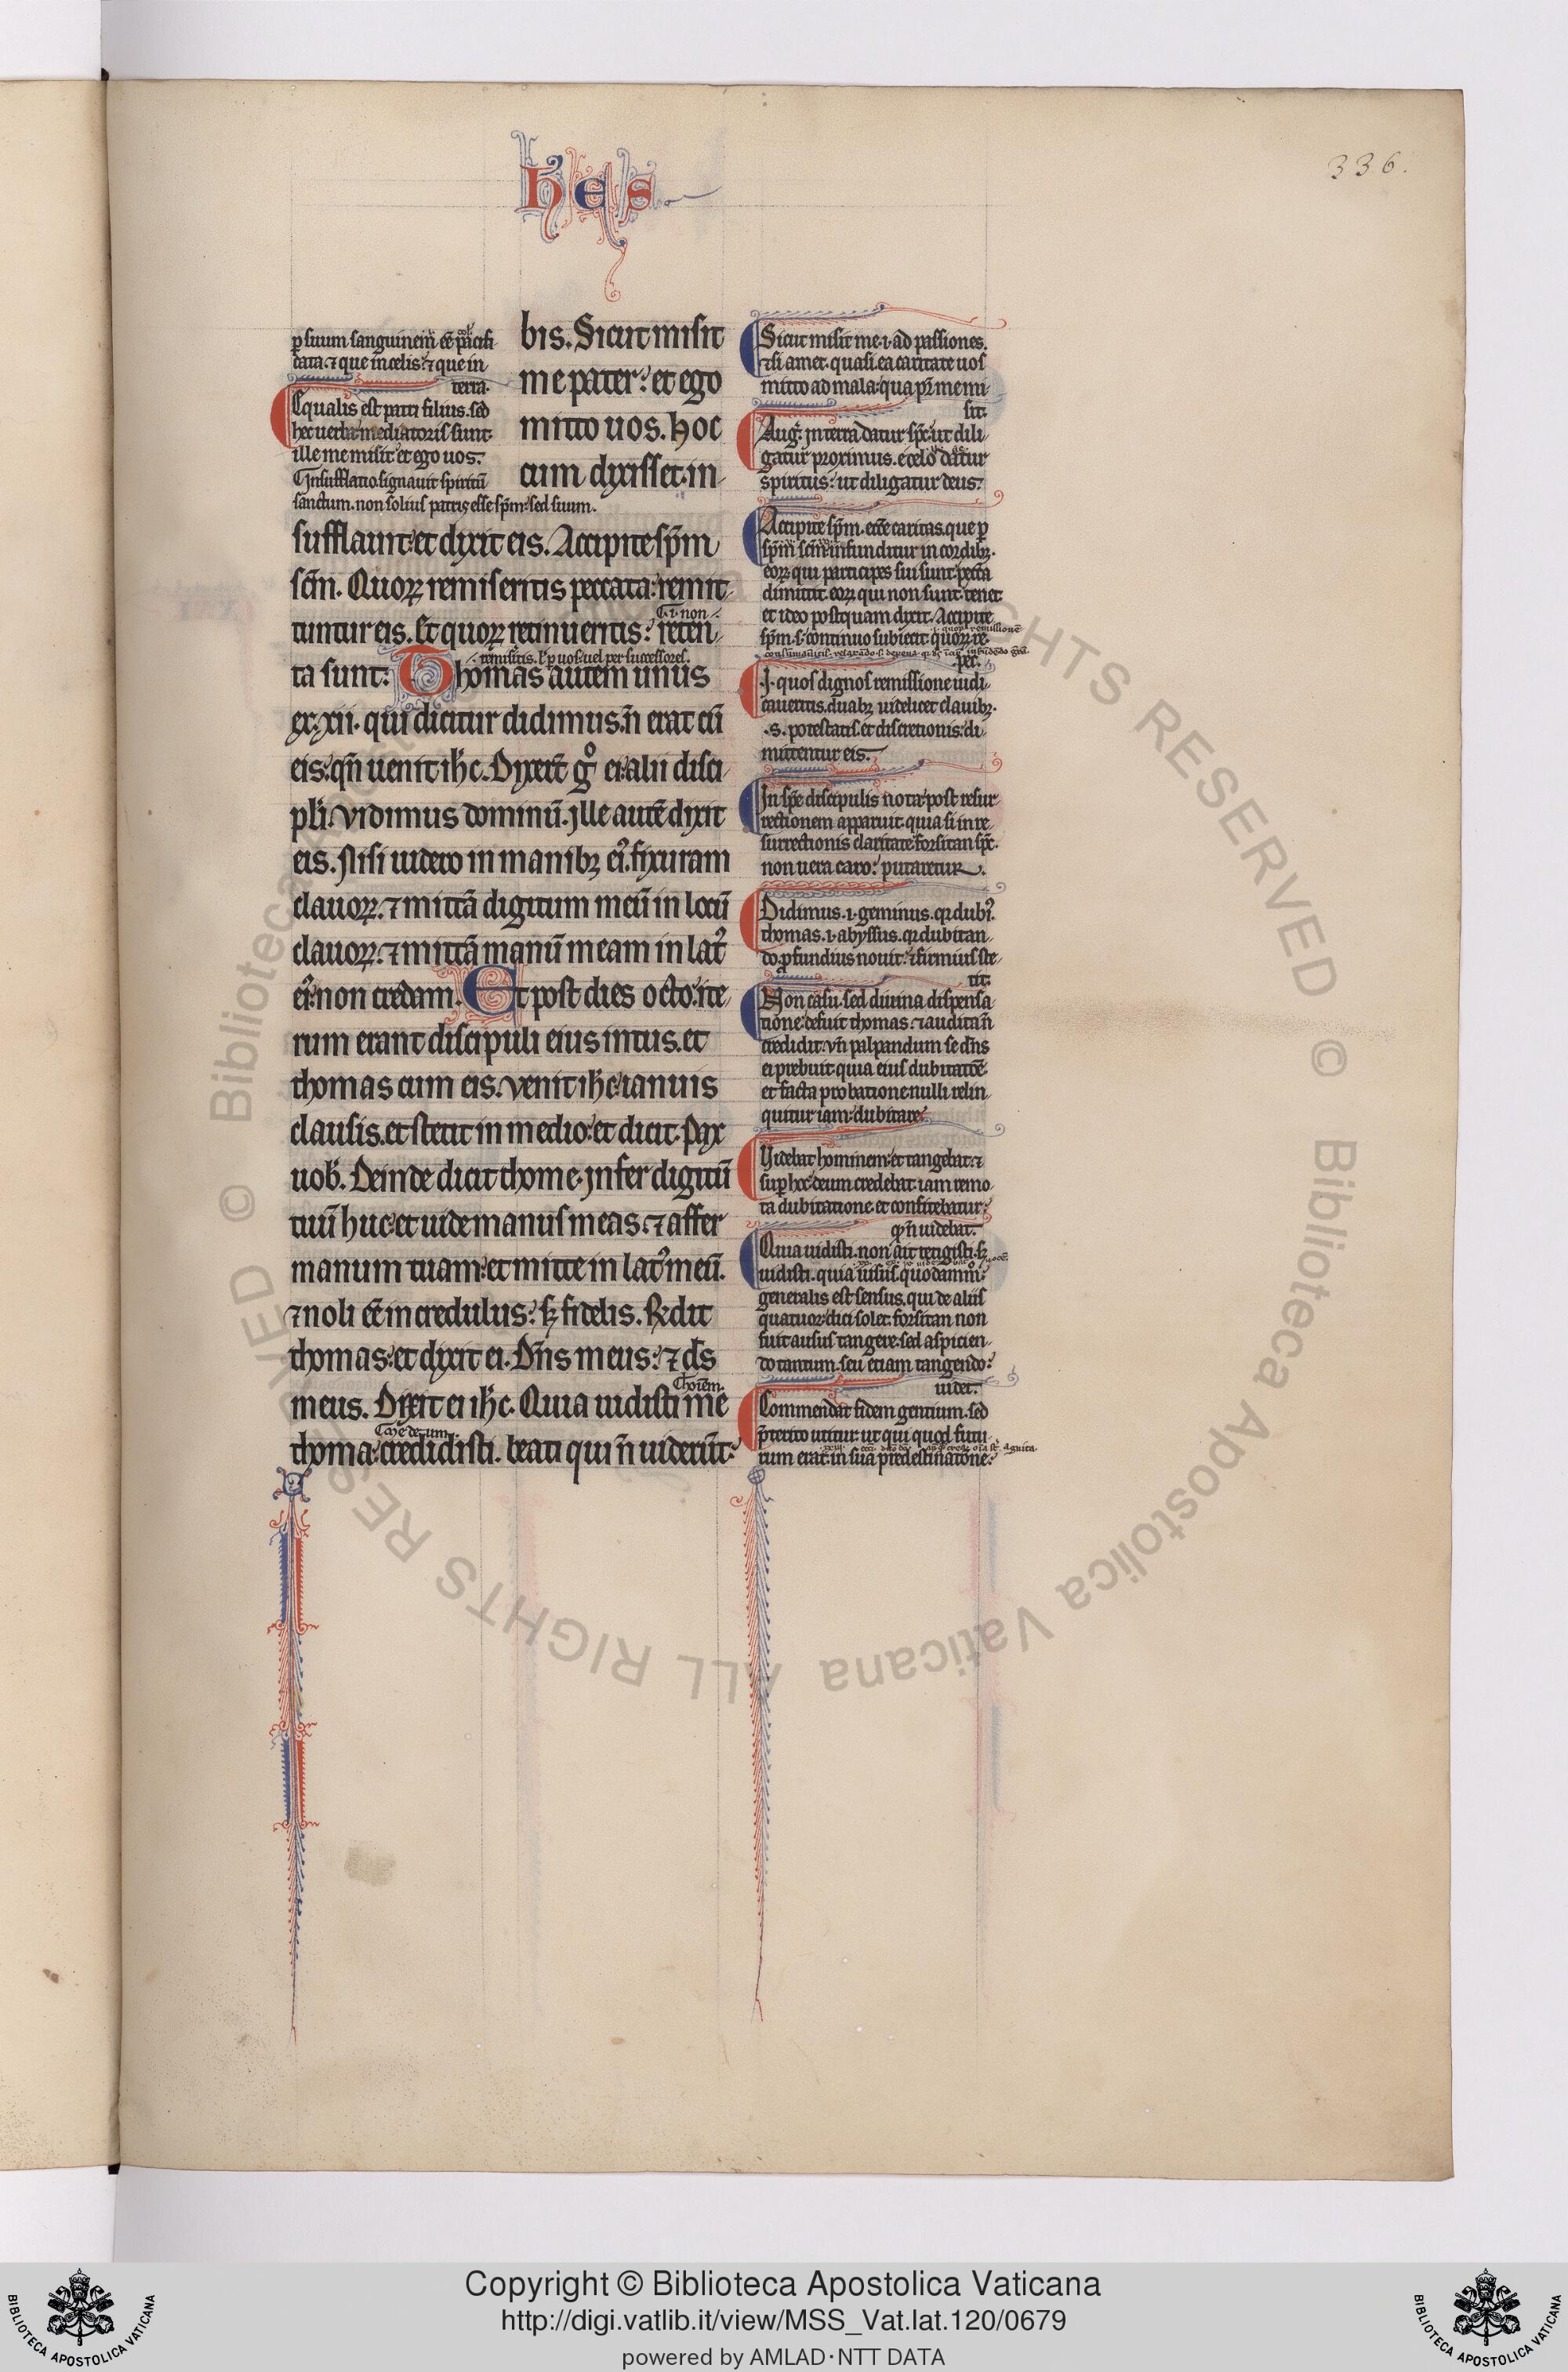 hes
336.
p suum sanguinem ee pacifi
cata. ⁊ que in celis: ⁊ que in
terra.
Equalis est patri filius. sed
hec uerba mediatoris sunt.
ille me misit et ego uos.
Insufflatio. signauit spiritū
sanctum. non solius patris esse sp̄m: sed suum.
bis. Sicut misit
me pater: et ego
mitto uos. hoc
cum dyxisset. in-
sufflauit: et dyxit eis. Accipite sp̄m
sc̄m. Quoꝝ remiseritis peccata: remit-
.i. non
tuntur eis. Et quoꝝ retinueritis: reten-
remiseritis. uel per successores.
ta sunt: Thomas autem unus
ex xii. qui dicitur didimus. n̄ erat cū
eis: qn̄ uenit ih̄c. Dixert̄ gͦ ei alii disci-
pl̄i. Vidimus dominū. Ille autē dixit
eis. Nisi uidero in manibꝫ eiꝰ. fixuram
clauoꝝ. ⁊ mittā digitum meū in locū
clauoꝝ: ⁊ mittā manū meam in latꝰ
eiꝰ: non credam. Et post dies octo: ite-
rum erant discipuli eius intus. et
thomas cum eis. Venit ih̄c ianuis
clausis. et stetit in medio: et dicit. Pax
uob̄. Deinde dicit thome. Infer digitū
tuū huc: et uide manus meas. ⁊ affer
manum tuam: et mitte in latꝰ meū.
⁊ noli eē incredulus: sꝫ fidelis. Rn̄dit
thomas: et dyxit ei. Dn̄s meus: ⁊ ds̄
hoīem.
meus. Dixit ei ih̄c. Quia uidisti me
thoma: credidisti. beati qui n̄ uiderūt:
Sicut misit me .i. ad passiones.
⁊ si amet. quasi. ea caritate uos
mitto ad mala: qua pr̄ me mi-
sit.
Aug. In terra datur sp̄c. ut dili-
gatur proximus. e celo datur
spiritus: ut diligatur deus.
Accipite sp̄m. ecce caritas. que p
sp̄m sc̄m infunditur in cordibꝫ.
eoꝝ qui participes sui sunt: pecc̄a
dimittit. eoꝝ qui non sunt: tenet
et ideo postquam dixit. Accipite
sp̄m .s. continuo subiecit. quoꝝ re.
pec.
.I. quos dignos remissione iudi-
caueritis. duabꝫ uidelicet clauibꝫ.
.s. potestatis. et discretionis: di-
mittentur eis.
In spē discipulis nota: post resur-
rectionem apparuit. quia si in re-
surrectionis claritate: forsitan sp̄c.
non uera caro: putaretur.
Didimus .i. geminus. qꝛ dubiꝰ.
thomas .i. abyssus. qꝛ dubitan-
do. pfundius nouit. ⁊ firmius ste-
tit.
Non casu. sed diuina dispensa-
tione: defuit thomas ⁊ audita n̄
credidit. vn̄ palpandum se dn̄s
ei prebuit. quia eius dubitatōe
et facta probatione nulli relin-
quitur iam: dubitare.
Videbat hominem: et tangebat: ⁊
sup hoc deum credebat. iam remo-
ta dubitatione. et confitebatur:
qꝫ n̄ uidebat.
Quia uidisti. non ait tetigisti. sꝫ
uidisti. quia uisus quodammͦ:
generalis est sensus. qui de aliis
quatuor: dici solet. forsitan non
fuit ausus tangere: sed aspicien-
do tantum. seu etiam tangendo:
uidet.
Commendat fidem gentium. sed
p̄terito utitur: ut qui quod futu-
rum erat: in sua predestinatone:
Copyright © Biblioteca Apostolica Vaticana
http://digi.vatlib.it/view/MSS_Vat.lat.120/0679
powered by AMLAD·NTT DATA
BIBLIOTECA APOSTOLICA VATICANA
BIBLIOTECA APOSTOLICA VATICANA
© Biblioteca Apostolica Vaticana ALL RIGHTS RESERVED